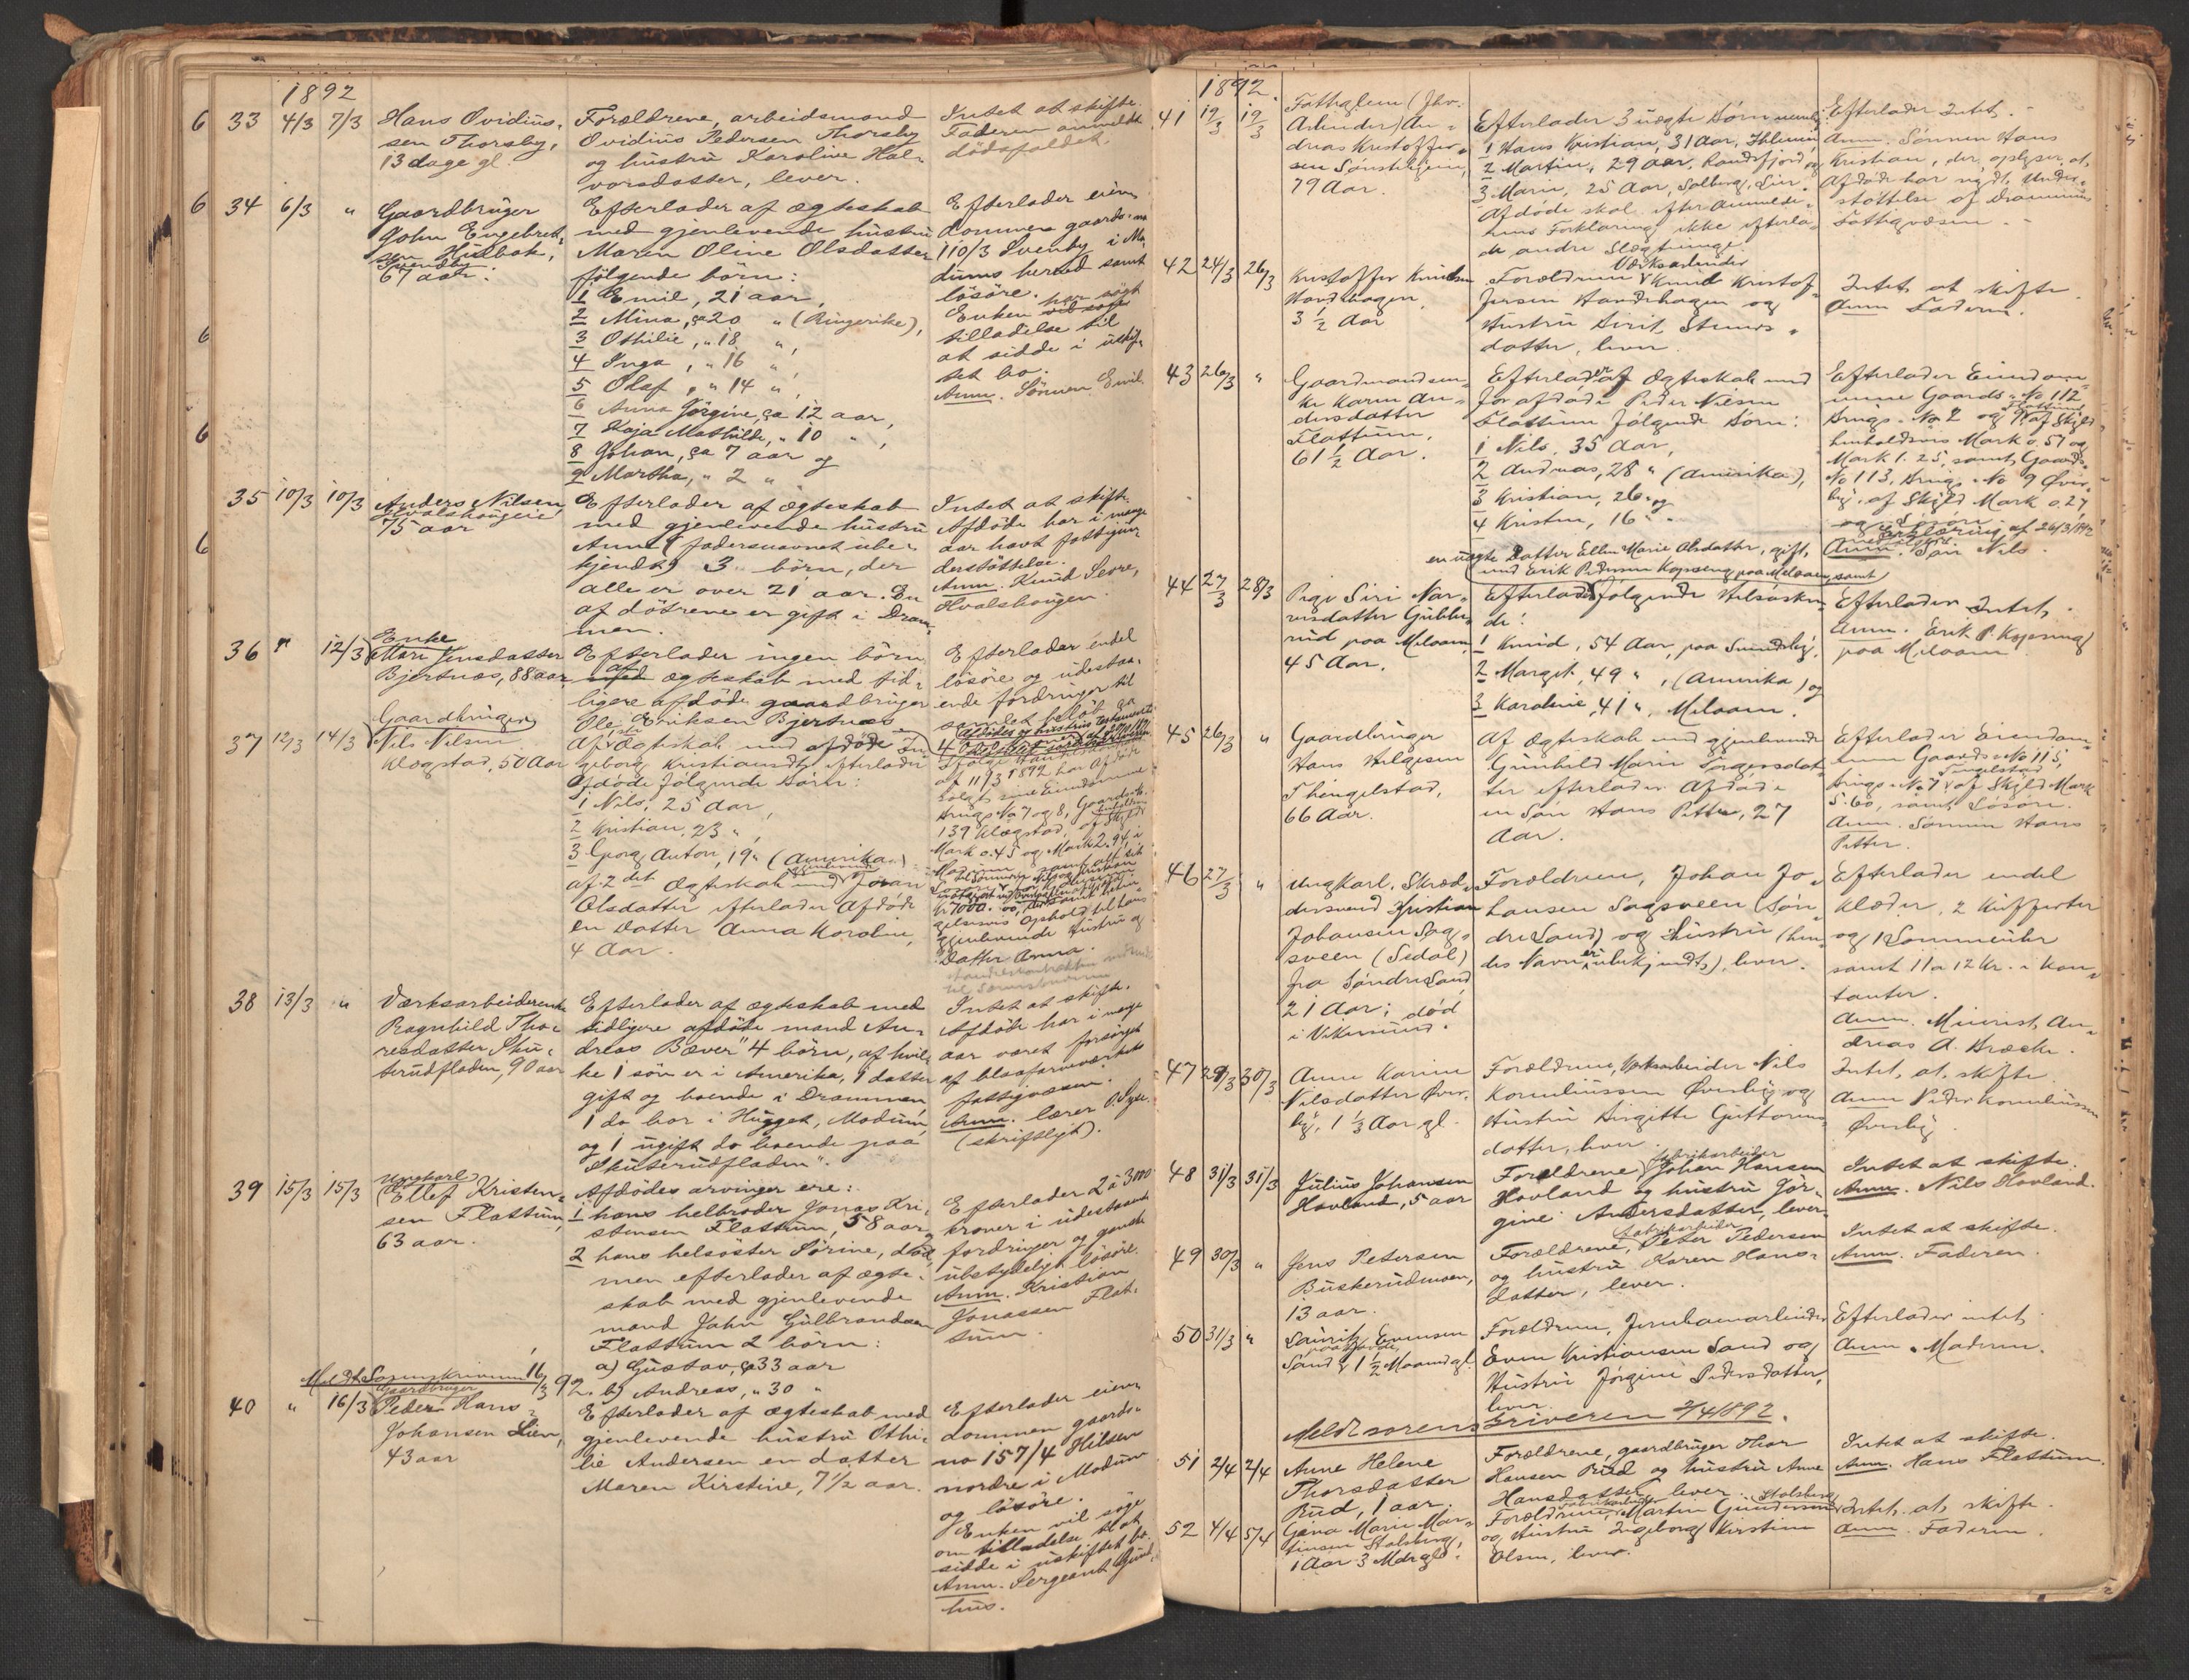 1892
33 4/3 7/3
Hans Ovidius-
sen Thorsby,
13 dage gl.
Forældrene, arbeidsmand
Ovidius Pedersen Thorsby
og hustru Karoline Hal-
vorsdatter, lever.
Intet at skifte.
Faderen anmeldte
dödsfaldet.
34 6/3 "
Gaardbruger
John Engebret-
sen Hulbak,
Svendby
67 aar.
Efterlader af ægteskab
med gjenlevende hustru
Maren Oline Olsdatter
følgende börn:
1 Emil, 21 aar,
2 Mina, ca 20 " (Ringerike),
3 Othilie, " 18 ",
4 Inga, " 16 ",
5 Olaf, " 14 ",
6 Anna Jörgine, ca 12 aar,
7 Kaja Mathilde, " 10 ",
8 Johan, ca 7 aar og
9 Martha, " 2 "
Efterlader eien-
dommen gaards-no
110/3 Svenby i Mo-
dums herred samt
lösöre.
Enken har sögt
tilladelse til
at sidde i uskif-
tet bo.
Anm. Sönnen Emil
35 10/3 10/3
Anders Nilsen
Hvalshougeie
75 aar
Efterlader af ægteskab
med gjenlevende hustru
Anne (fadersnavnet ube-
kjendt) 3 börn, der
alle er over 21 aar. En
af dötrene er gift i Dram-
men.
Intet at skifte.
Afdöde har i mange
aar havt fattigun-
derstöttelse.
Anm. Knud Sevre,
Hvalshougen.
36 " 12/3
Enke
Mari Jensdatter
Bjertnæs, 88 aar
Efterlader ingen börn
af ægteskab med tid-
ligere afdöde gaardbruger
Ole Eriksen Bjertnæs
Efterlader endel
lösöre og udestaa-
ende fordringer til
samlet belöb ca
37 12/3 14/3
Gaardbruger
Nils Nilsen
Klægstad, 50 Aar
Af 1ste Ægteskab med afdöde In-
geborg Kristiansdtr efterlader
Afdöde følgende Börn:
1 Nils, 25 Aar,
2 Kristian, 23 ",
3 Georg Anton, 19 " (Amerika).
af 2det Ægteskab med gjenlevende Joran
Olsdatter efterlader Afdöde
en Datter Anna Karoline,
4 Aar.
af 11/3 1892 har Afdöde
solgt sine Eiendomme
Brugs-No 7 og 8, Gaards-No
139 Klægstad, af Skyld
Mark 0.45 og Mark 2.94, i
gjenlevende Hustru og
Datter Anna.
38 13/3 "
Værksarbeiderenke
Ragnhild Tho-
resdatter Sku-
terudfladen, 90 aar
Efterlader af ægteskab med
tidligere afdöde mand An-
dreas Bæver" 4 börn, af hvil-
ke 1 sön er i Amerika, 1 datter
gift og boende i Drammen
1 do bor i Hugget, Modum,
og 1 ugift do boende paa
Skuterudfladen".
Intet at skifte.
Afdöde har i mange
aar været forsörget
af blaafarveværkets
fattigvæsen.
Anm. lærer
(skriftligt).
39 15/3 15/3
Ungkarl
Ellef Kristen-
sen Flattum,
63 aar.
Afdödes arvinger ere:
1 hans helbroder Jonas Kri-
stensen Flattum, 58 aar, og
2 hans helsöster Sörine, död,
men efterlader af ægte-
skab med gjenlevende
mand John Gulbrandsen
Flattum 2 börn:
a) Gustav, ca 33 aar
b) Andreas, " 30 "
Efterlader 2 à 300
kroner i udestaaende
fordringer og ganske
ubetydeligt lösöre.
Anm. Kristian
Jonassen Flat-
tum.
Meldt Sorenskriveren 16/3 92.
40 " 16/3
Gaardbruger
Peder Hans
Johansen Lien,
43 aar
Efterlader af ægteskab med
gjenlevende hustru Othi-
lie Andersen en datter
Maren Kirstine, 7 1/2 aar.
Efterlader eien-
dommen gaards-
no 157/4 Hilsen
nordre i Modum
og lösöre.
Enken vil söge
om tilladelse til at
sidde i uskiftet bo.
Anm. Sergeant Gund-
hus.
1892.
41 19/3 19/3
Fattiglem (fhv.
Arbeider) An-
dreas Kristoffer-
sen
79 Aar.
Efterlader 3 uægte Börn nemlig
1 Hans Kristian, 31 Aar,
2 Martin, 29 Aar, Randsfjord, og
3 Marie, 25 Aar, Solberg, Lier.
Afdöde skal efter Anmelde-
rens Forklaring ikke efterla-
de andre Slægtninge.
Efterlader Intet.
Anm. Sönnen Hans
Kristian, der oplyser, at
Afdöde har nydt Under-
stöttelse af Drammens
Fattigvæsen.
42 24/3 26/3
Kristoffer Knudsen
Hardhagen,
3 1/2 Aar
Forældrene Værksarbeider Knud Kristof-
fersen Hardhagen og
Hustru Sirit
datter, lever
Intet at skifte
Anm Faderen.
43 26/3 "
Gaardmandsen-
ke Karen An-
dersdatter
Flattum,
61 1/2 Aar.
Efterlader af Ægteskab med
för afdöde Peder Nilsen
Flattum følgende Börn:
1 Nils, 35 Aar,
2 Andreas, 28 " (Amerika),
3 Kristian, 26 " og
4 Kristen, 16 ".
Efterlader Eiendom-
mene Gaards-No 112
Brugs-No 2 og Flattum af Skyld
henholdsvis Mark 0.57 og
Mark 1.25, samt Gaards-
No 113, Brugs-No 9 Øver-
by, af Skyld Mark 0.27,
og Lösöre
Anm. Sön Nils.
en uægte Datter Ellen Marie Olsdatter, gift,
med Erik Pedersen Kopseng paa Meloaen, samt
44 27/3 28/3
Pige Siri Nar-
vesdatter Gubbe-
rud paa Meloaen,
45 Aar.
Efterlader følgende Helsösken-
de:
1 Knud, 54 Aar, paa Svendsby,
2 Margit, 49 ", (Amerika) og
3 Karoline, 41 ", Meloaen.
Efterlader Intet.
Anm. Erik P. Kopseng
paa Meloaen
45 26/3 "
Gaardbruger
Hans Helgesen
Thingelstad,
66 Aar.
Af Ægteskab med gjenlevende
Gunhild Marie Torgersdat-
ter efterlader Afdöde
en Sön Hans Petter, 27
Aar.
Efterlader Eiendom-
men Gaards-No 115,
Brugs-No 7 Tingelstad af Skyld Mark
5.60, samt Lösöre.
Anm. Sönnen Hans
Petter.
46 27/3 "
Ungkarl, Skræd-
dersvend Kristian
Johansen Sag-
sveen (Sedal)
fra Söndre Land
21 Aar; död
i Vikersund.
Forældrene, Johan Jo-
hansen Sagsveen (Sön-
dre Land) og Hustru (hen-
des Navn er ubekjendt), lever.
Efterlader endel
Klæder, 2 Kufferter
og 1 Lommeuhr
samt 11 a 12 Kr. i Kon-
tanter.
Anm. Minerist, An-
dreas A. Bræcke.
47 29/3 30/3
Anne Karine
Nilsdatter Øver-
by, 1 1/3 Aar gl.
Forældrene, Værksarbeider Nils
Korneliussen Øverby og
Hustru Birgitte Guttorms-
datter, lever.
Intet at skifte
Anm Peder Korneliussen
Øverby
48 31/3 31/3
Julius Johansen
Hovland, 5 aar
Forældrene, fabrikarbeider Johan Hansen
Hovland og hustru Jör-
gine Andersdatter, lever.
Intet at skifte.
Anm. Nils Hovland.
49 30/3 "
Jens Petersen
Buskerudmoen,
13 aar.
Forældrene, fabrikarbeider Peter Pedersen
og hustru Karen Hans-
datter, lever.
Intet at skifte.
Anm. Faderen.
50 31/3 "
Lauritz Evensen
Sand, 1 1/2 Maaned gl.
Forældrene, Jernbanearbeider
Even Kristiansen Sand og
Hustru Jörgine Pedersdatter,
lever.
Efterlader intet.
Anm. Moderen.
Meldt sorenskriveren 2/4 1892.
51 2/4 2/4
Anne Helene
Thorsdatter
Rud, 1 aar.
Forældrene, gaardbruger Thor
Hansen Rud og hustru Anne
Hansdatter, lever.
Intet at skifte.
Anm. Hans Flattum.
52 4/4 5/4
Gina Marie Mar-
tinsen Stalsberg,
1 Aar 3 Mdr gl.
Forældrene, Fabrikarbeider Martin Gundersen Stalsberg
og Hustru Ingeborg Kirstine
Olsen, lever.
Intet at skifte.
Anm. Faderen.